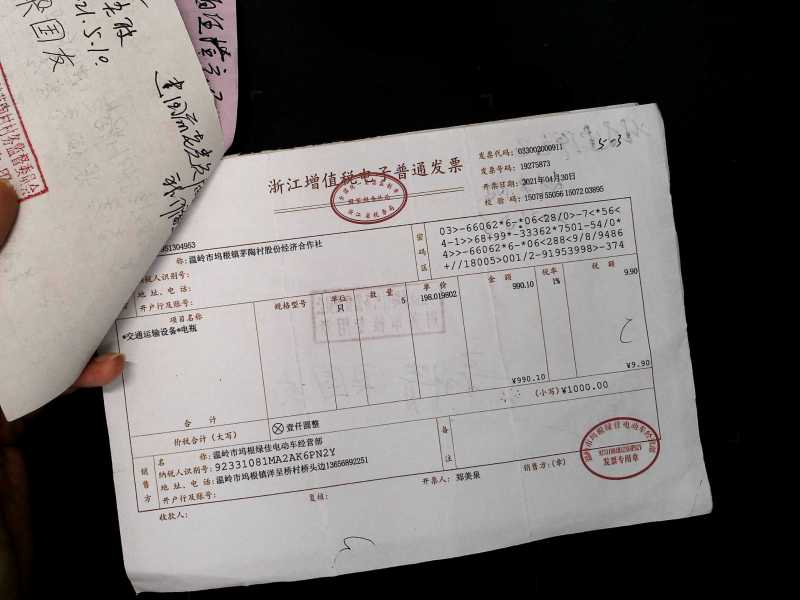 21.5.10
国友
村务监督委员会
浙江增值税电子普通发票
发票代码: 033002000911
发票号码: 19275873
开票日期: 2021年04月30日
校 验 码: 15078 55056 15072 03895
5-3
951304953
称: 温岭市坞根镇茅陶村股份经济合作社
纳税人识别号:
地 址、电 话:
开户行及账号:
密码区
03>-66062*6-*06<28/0>-7<*56<
4-1>>68+99*-33362*7501-54/0*
4>>-66062*6-*06<288<9/8/9486
+//18005>001/2-91953998>-374
项目名称 规格型号 单位 数 量 单 价 金 额 税率 税 额
*交通运输设备*电瓶 只 5 198.019802 990.10 1% 9.90
合 计 ¥990.10 ¥9.90
价税合计 (大写) ⊗壹仟圆整 (小写) ¥1000.00
销售方
名 称: 温岭市坞根绿佳电动车经营部
纳税人识别号: 92331081MA2AK6PN2Y
地 址、电 话: 温岭市坞根镇洋呈桥村桥头边13656892251
开户行及账号:
备注
收款人: 复核: 开票人: 郑美泉 销售方: (章)
温岭市坞根绿佳电动车经营部
92331081MA2AK6PN2Y
发票专用章